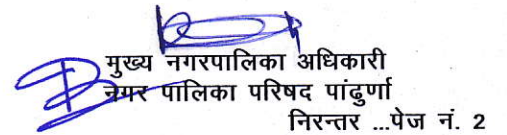 मुख्य नगरपालिका अधिकारी
नगर पालिका परिषद पांढुर्णा
निरन्तर ...पेज नं. 2